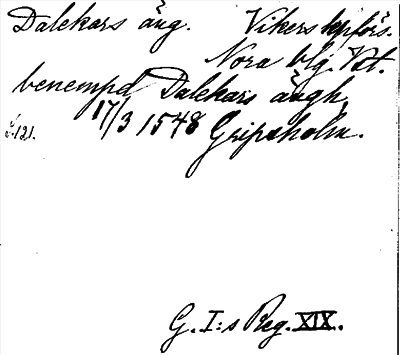 Dalekars äng. Vikers kpförs.
Nora blg. Vst.
benempd Dalekars ängh,
17/3 1548 Gripsholm.
s. 121.
G. I:s Reg. XIX.